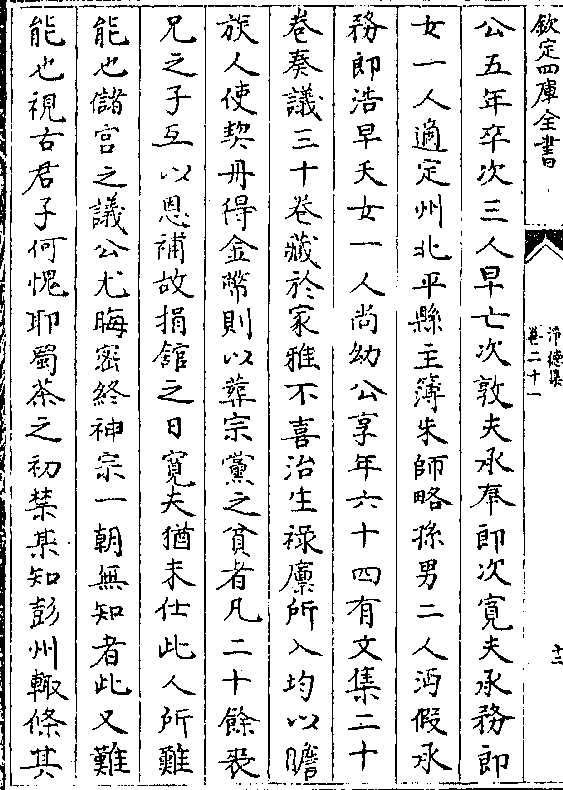 欽定四庫全書
淨德集
卷二十一
十三
公五年卒次三人早亡次敦夫承奉郎次寛夫承務郎
女一人適定州北平縣主簿朱師略孫男二人沔假承
務郎浩早夭女一人尚幼公享年六十四有文集二十
巻奏議三十卷藏於家雅不喜治生祿廩所入均以贍
族人使契丹得金幣則以葬宗黨之貧者凡二十餘喪
兄之子互以恩補故捐館之日寛夫猶未仕此人所難
能也儲宫之議公尤晦密終神宗一朝無知者此又難
能也視古君子何愧耶蜀茶之初禁某知彭州輙條其